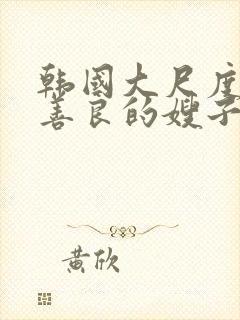 韩国大尺度
善良的嫂子
黄欣